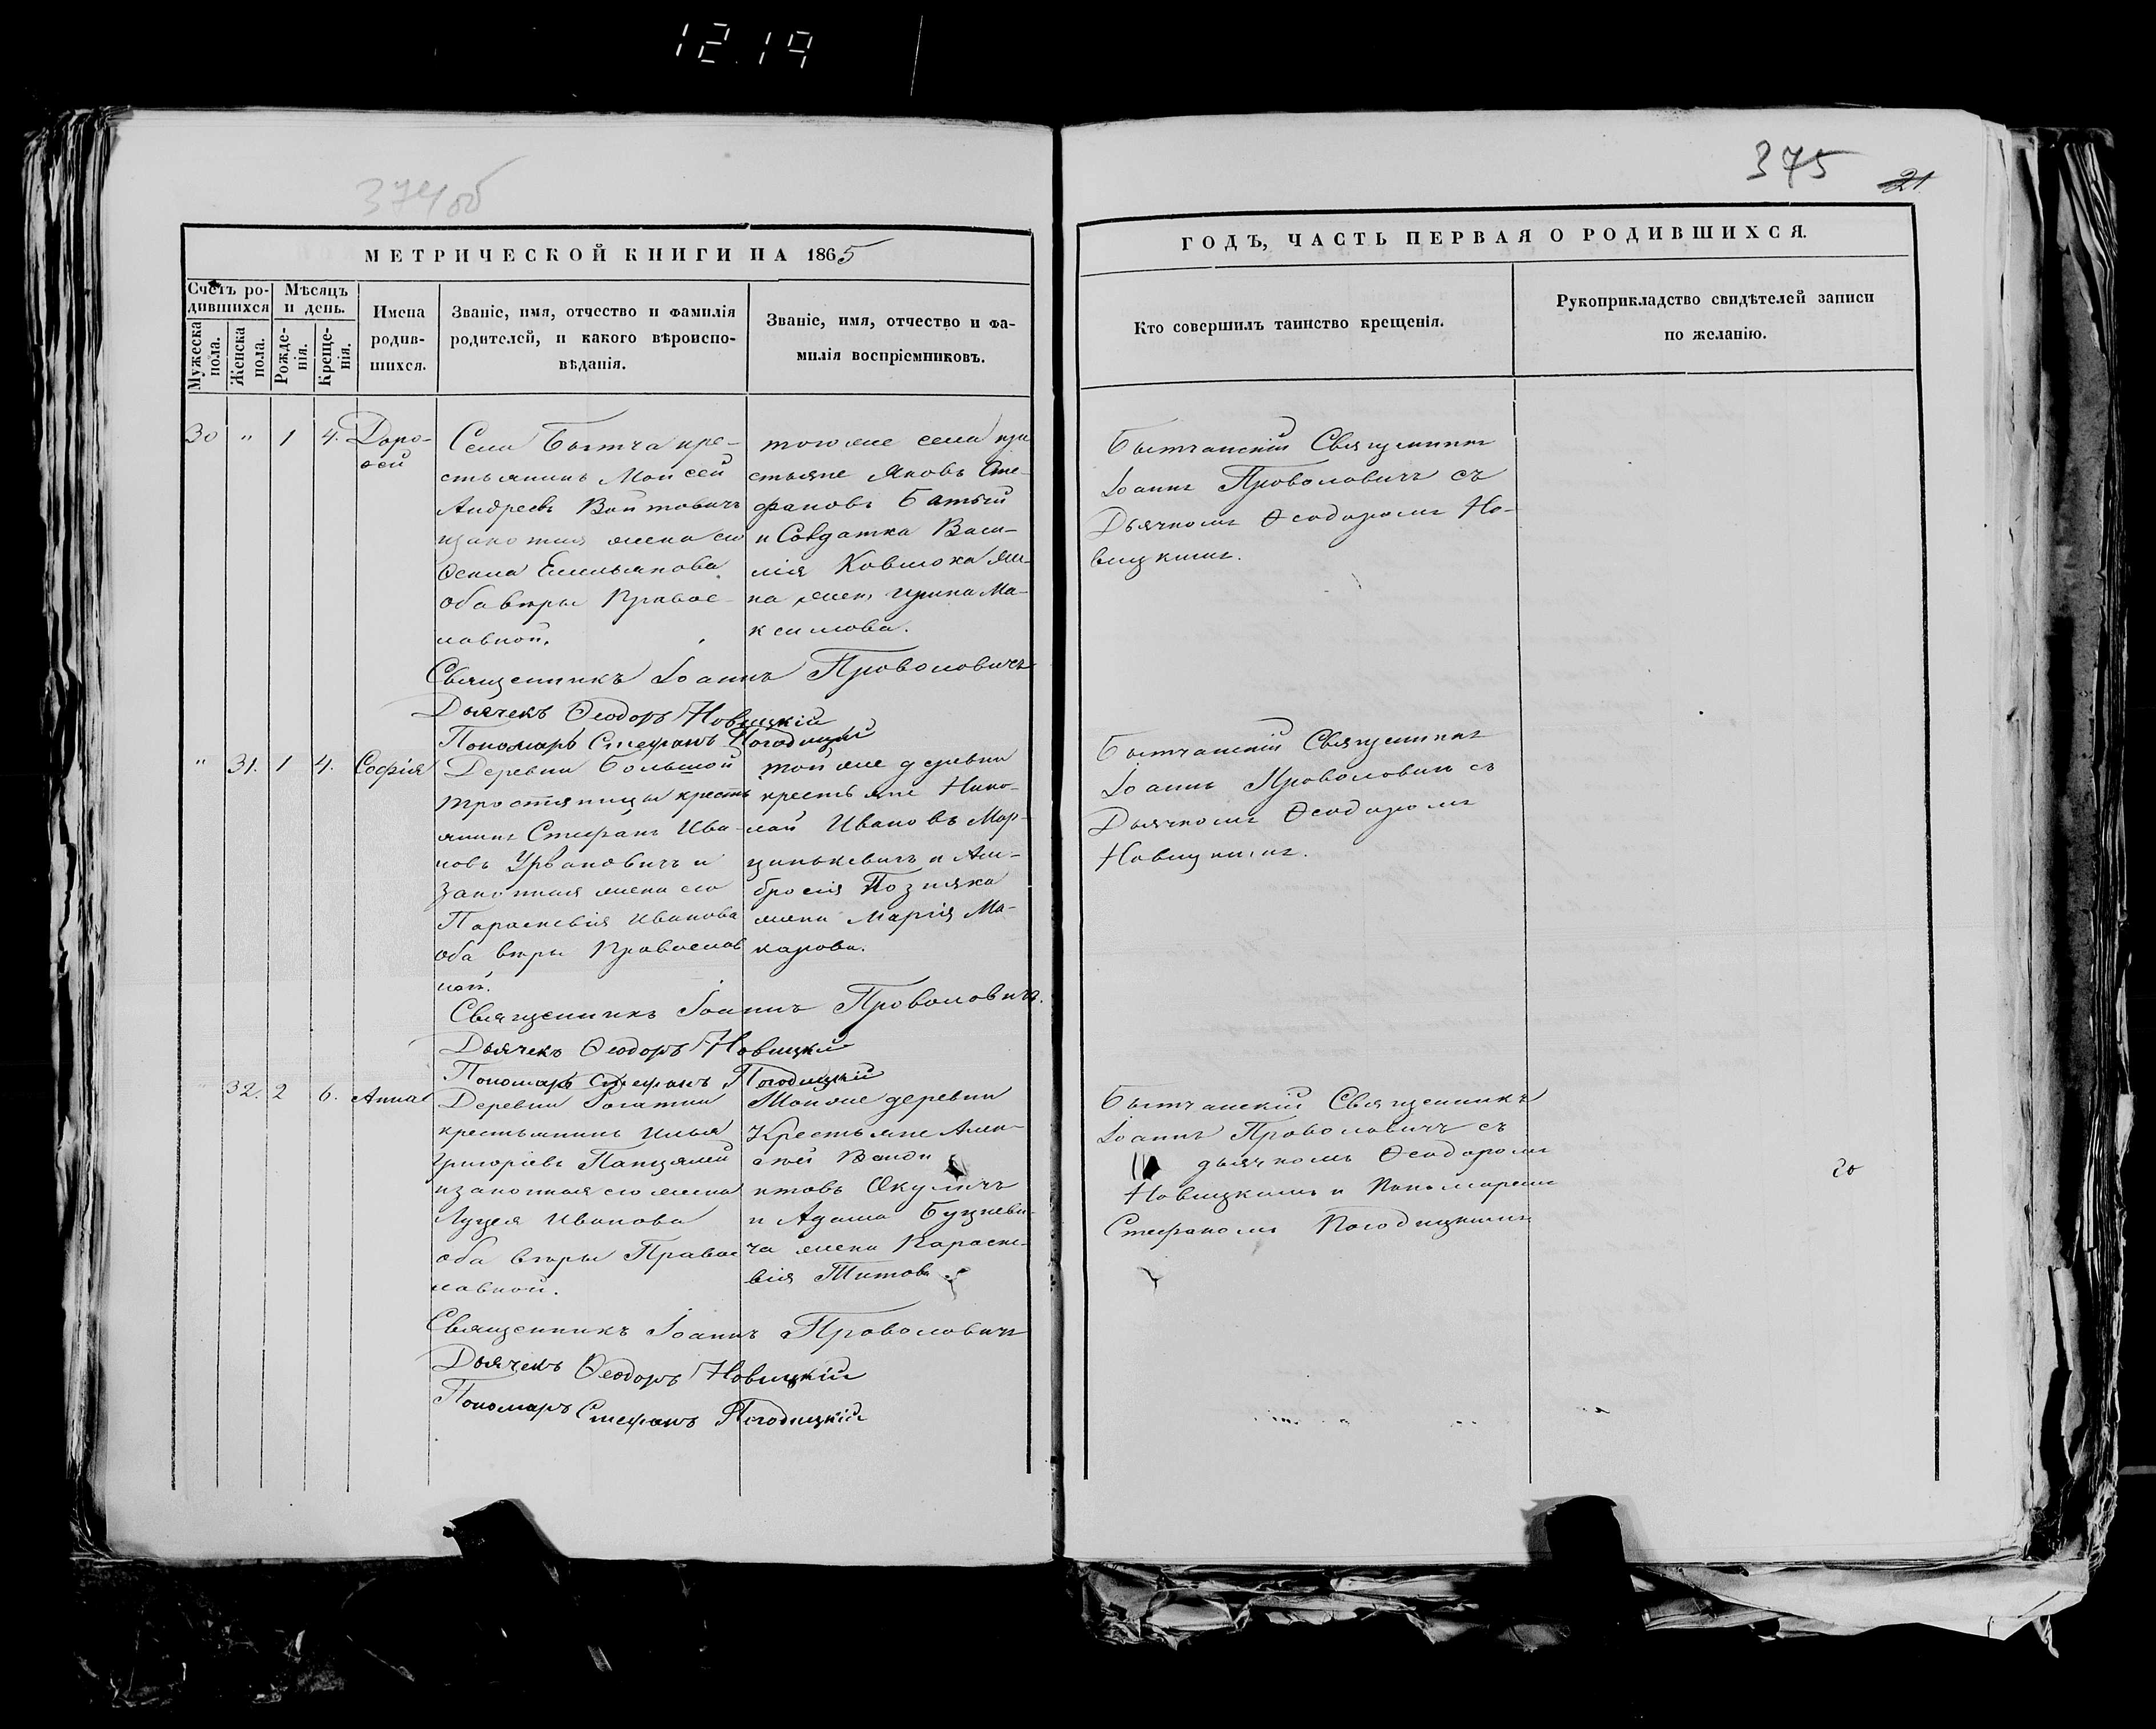 12.19
374об
375
21
МЕТРИЧЕСКОЙ КНИГИ НА 1865
ГОДЪ, ЧАСТЬ ПЕРВАЯ О РОДИВШИХСЯ.
Счетъ ро-
дившихся
Мужеска
пола.
Женска
пола.
Мѣсяцъ
и день.
Рожде-
нія.
Креще-
нія.
Имена
родив-
шихся.
Званіе, имя, отчество и фамилія
родителей, и какого вѣроиспо-
вѣданія.
Званіе, имя, отчество и фа-
милія воспріемниковъ.
Кто совершилъ таинство крещенія.
Рукоприкладство свидѣтелей записи
по желанію.
30 " 1 4. Доро-
ѳей
Села Бытча кре-
стьянинъ Моисей
Андреевъ Войтовичъ
изаконная жена его
Ѳекла Емельянова
оба вѣры Правос-
лавной.
тогоже села кре
стьяне Яковъ Сте-
фановъ Батый
и Солдатка Васи-
лія Ковшока же-
на Ирина Ма-
ксимова.
Бытчанскій Священникъ
Іоаннъ Проволовичъ съ
Дьячкомъ Ѳеодоромъ Но-
вицкимъ.
Священникъ Іоаннъ Проволовичъ
Дьячекъ Ѳеодоръ Новицкій
Пономарь Стефанъ Погодицкій
" 31. 1 4. Софія
Деревни Большой
тростяницы кресть
янинъ Стефанъ Ива-
новъ Урбановичъ и
законная жена его
Параскевія Иванова
оба вѣры Православ
ной.
той же деревни
крестьяне Нико-
лай Ивановъ Мар-
цинькевичъ и Ам-
бросія Позняка
жена Марія Ма-
карова.
Бытчанскій Священникъ
Іоаннъ Проволовичъ съ
Дьячкомъ Ѳеодоромъ
Новицкимъ.
Священникъ Іоаннъ Проволовичъ.
Дьячекъ Ѳеодоръ Новицкій
Пономарь Стефанъ Погодицкій
" 32. 2 6. Анна
Деревни Рогатки
крестьянинъ Илья
Григорьевъ
изаконная его жена
Луцея Иванова
оба вѣры Правос
лавной.
Тойже деревни
Крестьяне Алек-
сѣй
Окуличъ
и Адама Буцкеви-
ча жена Параске-
вія Титова
Бытчанскій Священникъ
Іоаннъ Проволовичъ съ
дьячкомъ Ѳеодоромъ
Новицкимъ и Пономаремъ
Стефаномъ Погодицкимъ
20
Священникъ Іоаннъ Проволовичъ
Дьячекъ Ѳеодоръ Новицкій
Пономарь Стефанъ Погодицкій